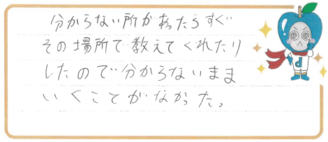 分からない所があったらすぐ
その場所で教えてくれたり
したので分からないまま
いくことがなかった。